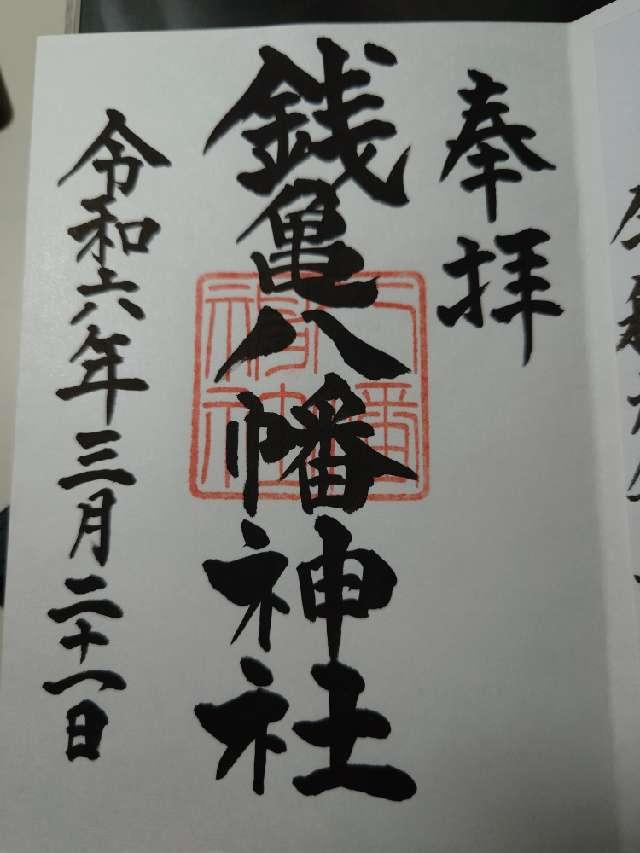 奉拝
銭亀八幡神社
令和六年三月二十一日